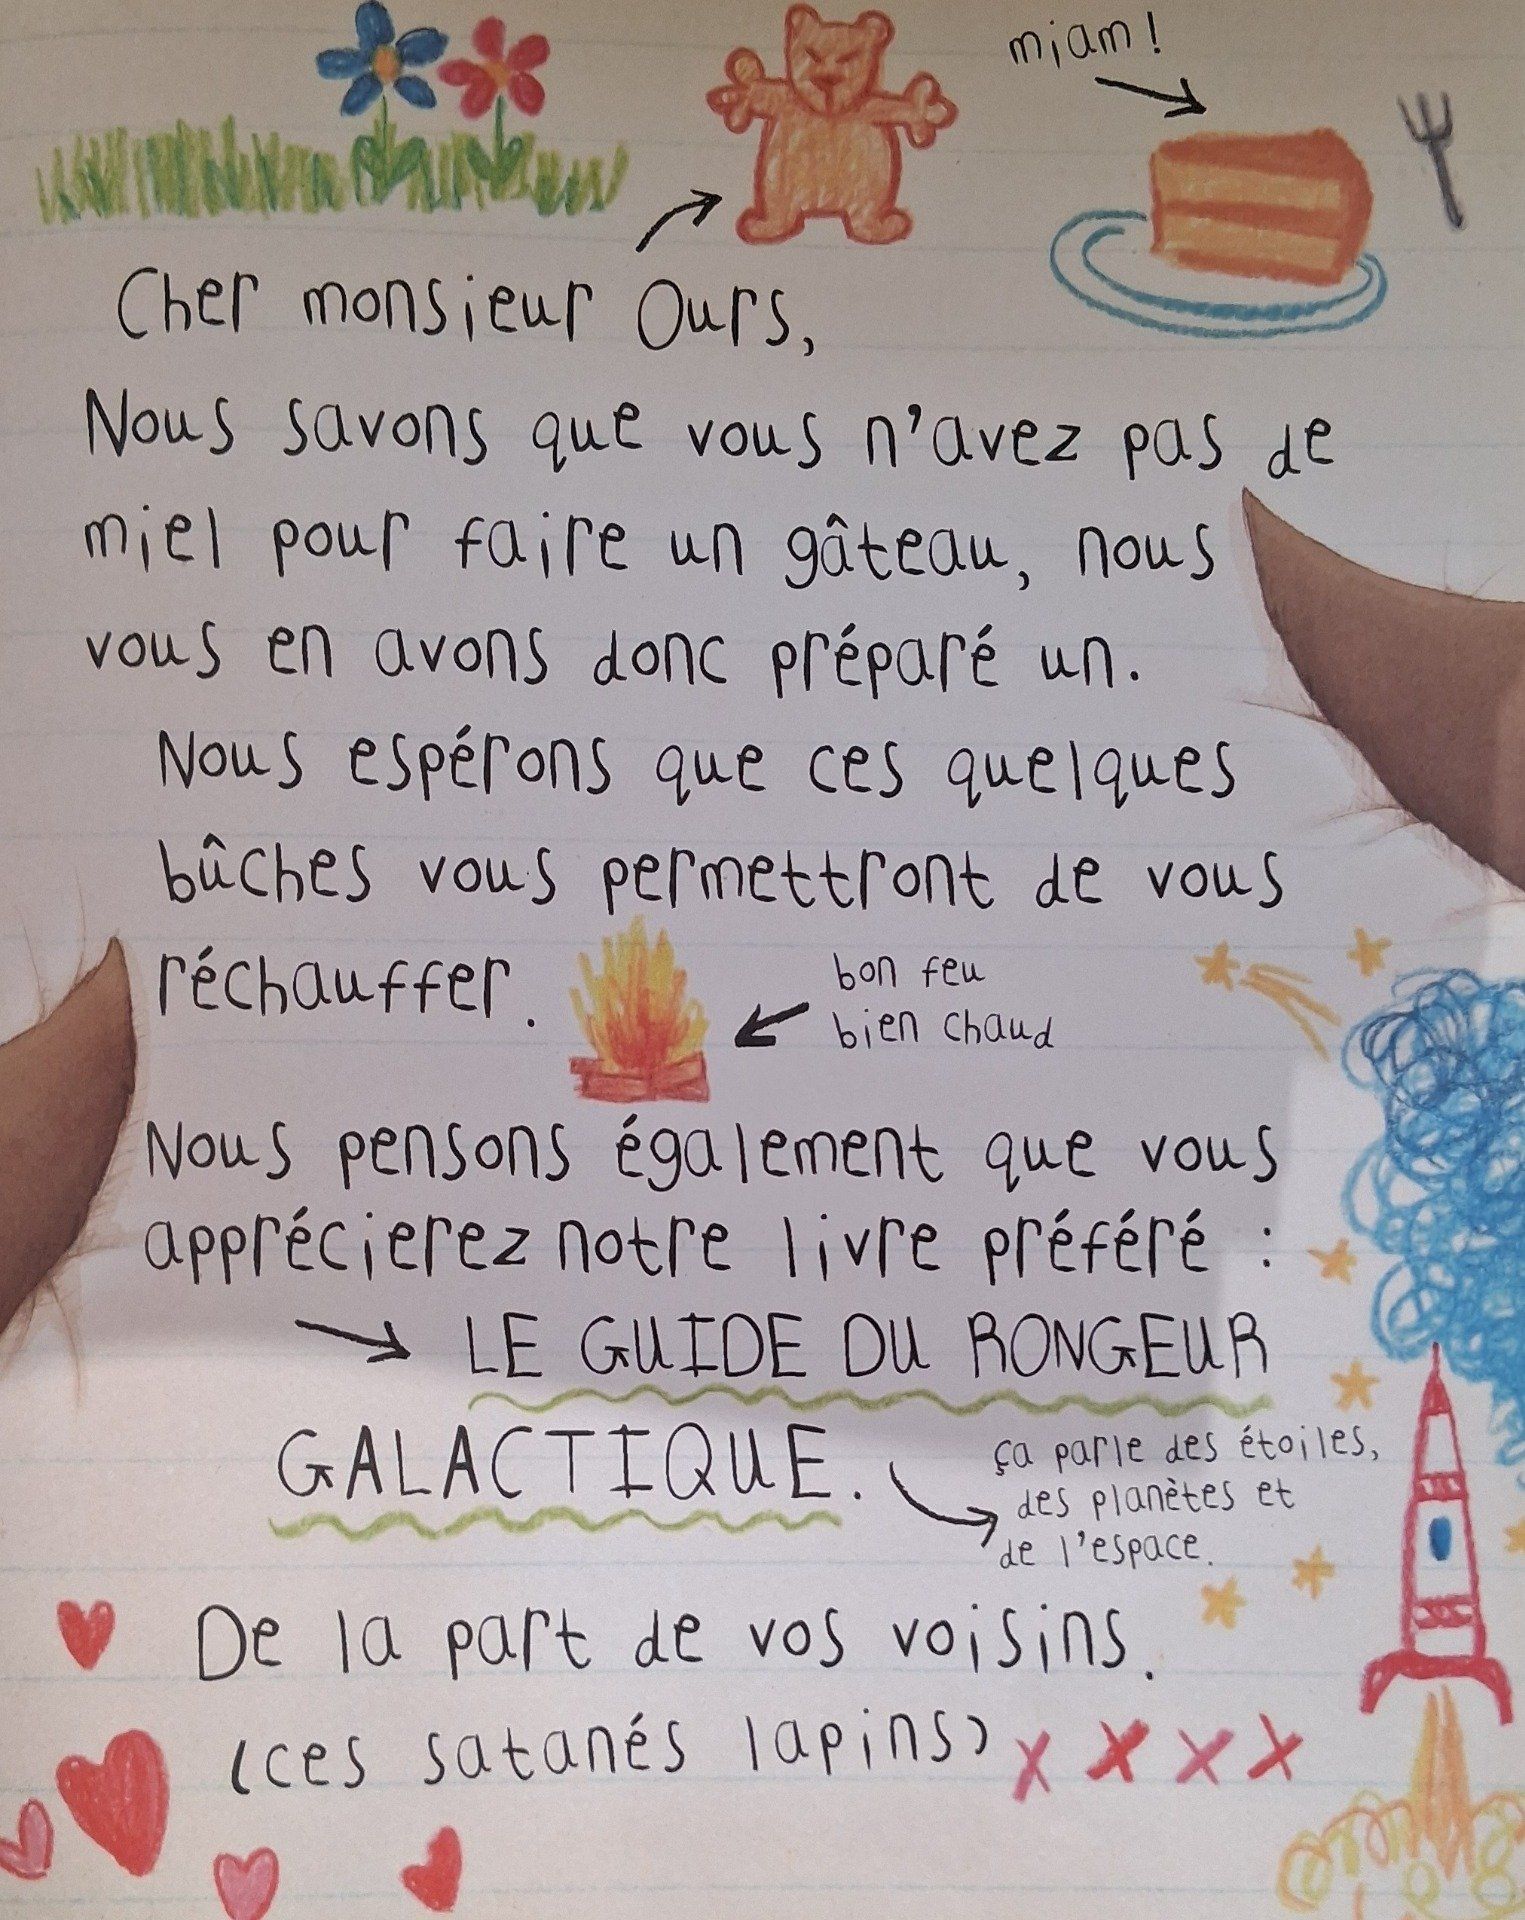 miam !
Cher monsieur Ours,
Nous savons que vous n'avez pas de
miel pour faire un gâteau, nous
vous en avons donc préparé un.
Nous espérons que ces quelques
bûches vous permettront de vous
réchauffer.
bon feu
bien chaud
Nous pensons également que vous
apprécierez notre livre préféré :
LE GUIDE DU RONGEUR
GALACTIQUE.
ça parle des étoiles,
des planètes et
de l'espace.
De la part de vos voisins.
(ces satanés lapins) x x x x